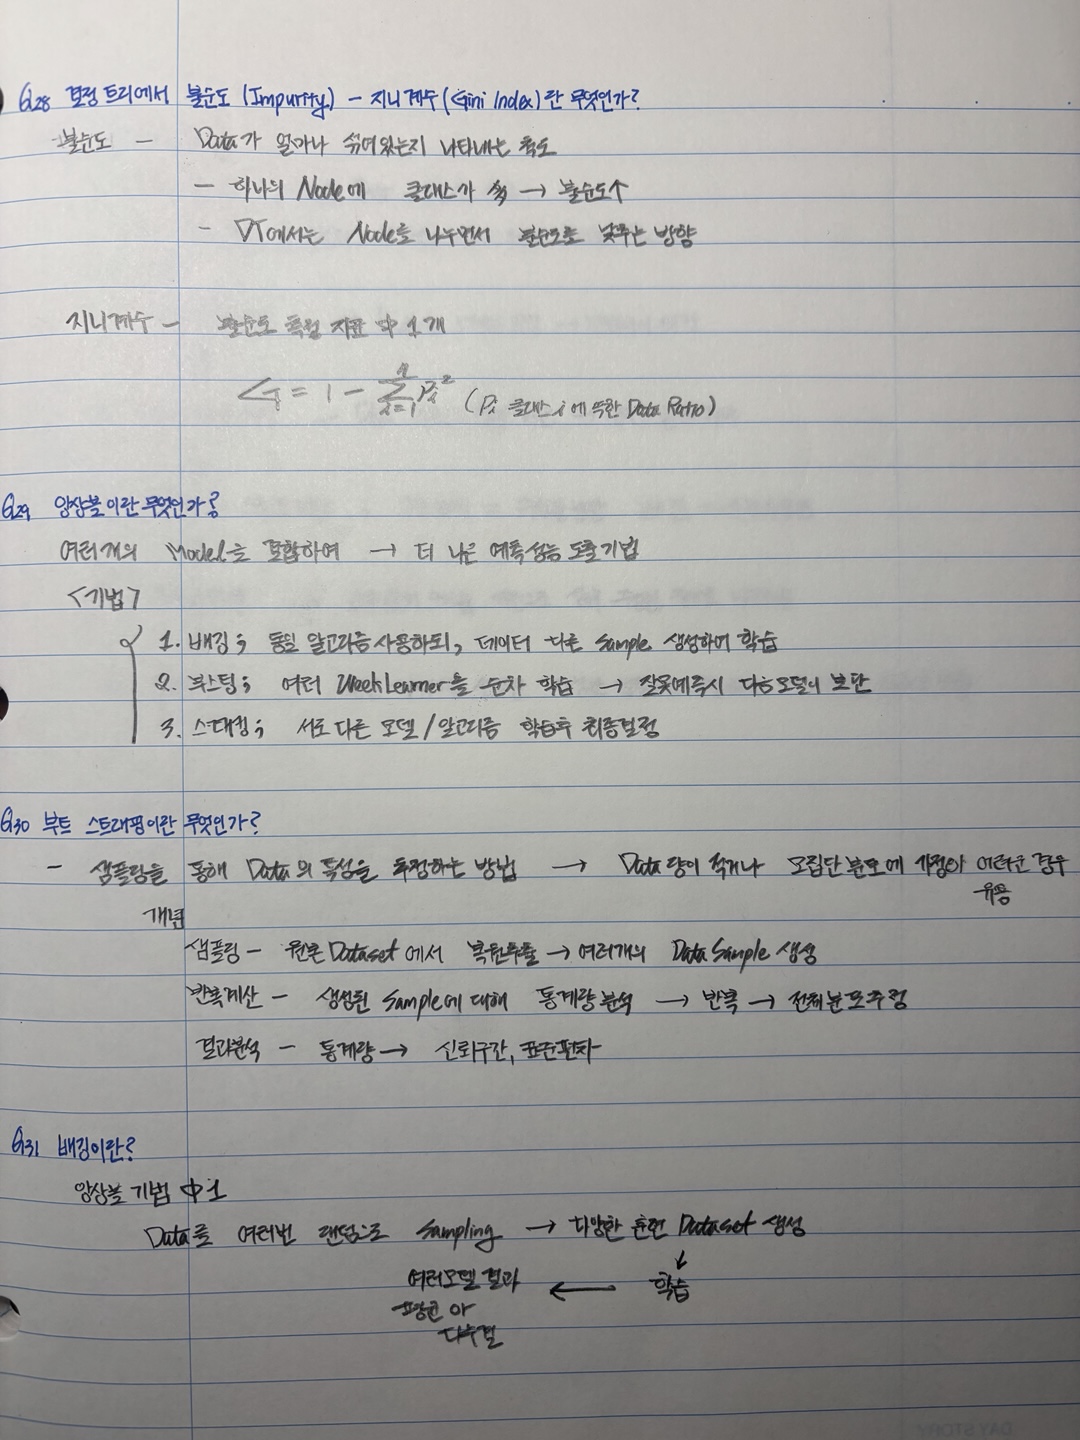 Q28 결정 트리에서 불순도 (Impurity) - 지니계수 (Gini Index)란 무엇인가?
불순도 - Data가 얼마나 섞여있는지 나타내는 척도
- 하나의 Node에 클래스가 多 → 불순도↑
- DT에서는 Node를 나누면서 불순도를 낮추는 방향
지니계수 - 불순도 측정 지표 中 1개
G = 1 - Σ i=1 Pi² (Pi 클래스 i에 속한 Data Ratio)
Q29 앙상블이란 무엇인가?
여러개의 Model을 결합하여 → 더 나은 예측성능 도출기법
<기법>
1. 배깅; 동일 알고리즘 사용하되, 데이터 다른 Sample 생성하여 학습
2. 부스팅; 여러 Week Learner를 순차 학습 → 잘못예측시 다음모델이 보완
3. 스태킹; 서로 다른 모델/알고리즘 학습후 최종결정
Q30 부트 스트래핑이란 무엇인가?
- 샘플링을 통해 Data의 특성을 추정하는 방법 → Data 양이 적거나 모집단 분포에 가정이 어려운 경우
유용
개념
샘플링 - 원본 Dataset에서 복원추출 → 여러개의 Data Sample 생성
반복계산 - 생성된 Sample에 대해 통계량 분석 → 반복 → 전체분포추정
결과분석 - 통계량 → 신뢰구간, 표준편차
Q31 배깅이란?
앙상블 기법 中 1
Data를 여러번 랜덤으로 Sampling → 다양한 훈련 Dataset 생성
↓
여러모델 결과 ← 학습
평균 or
다수결
DAY STORY